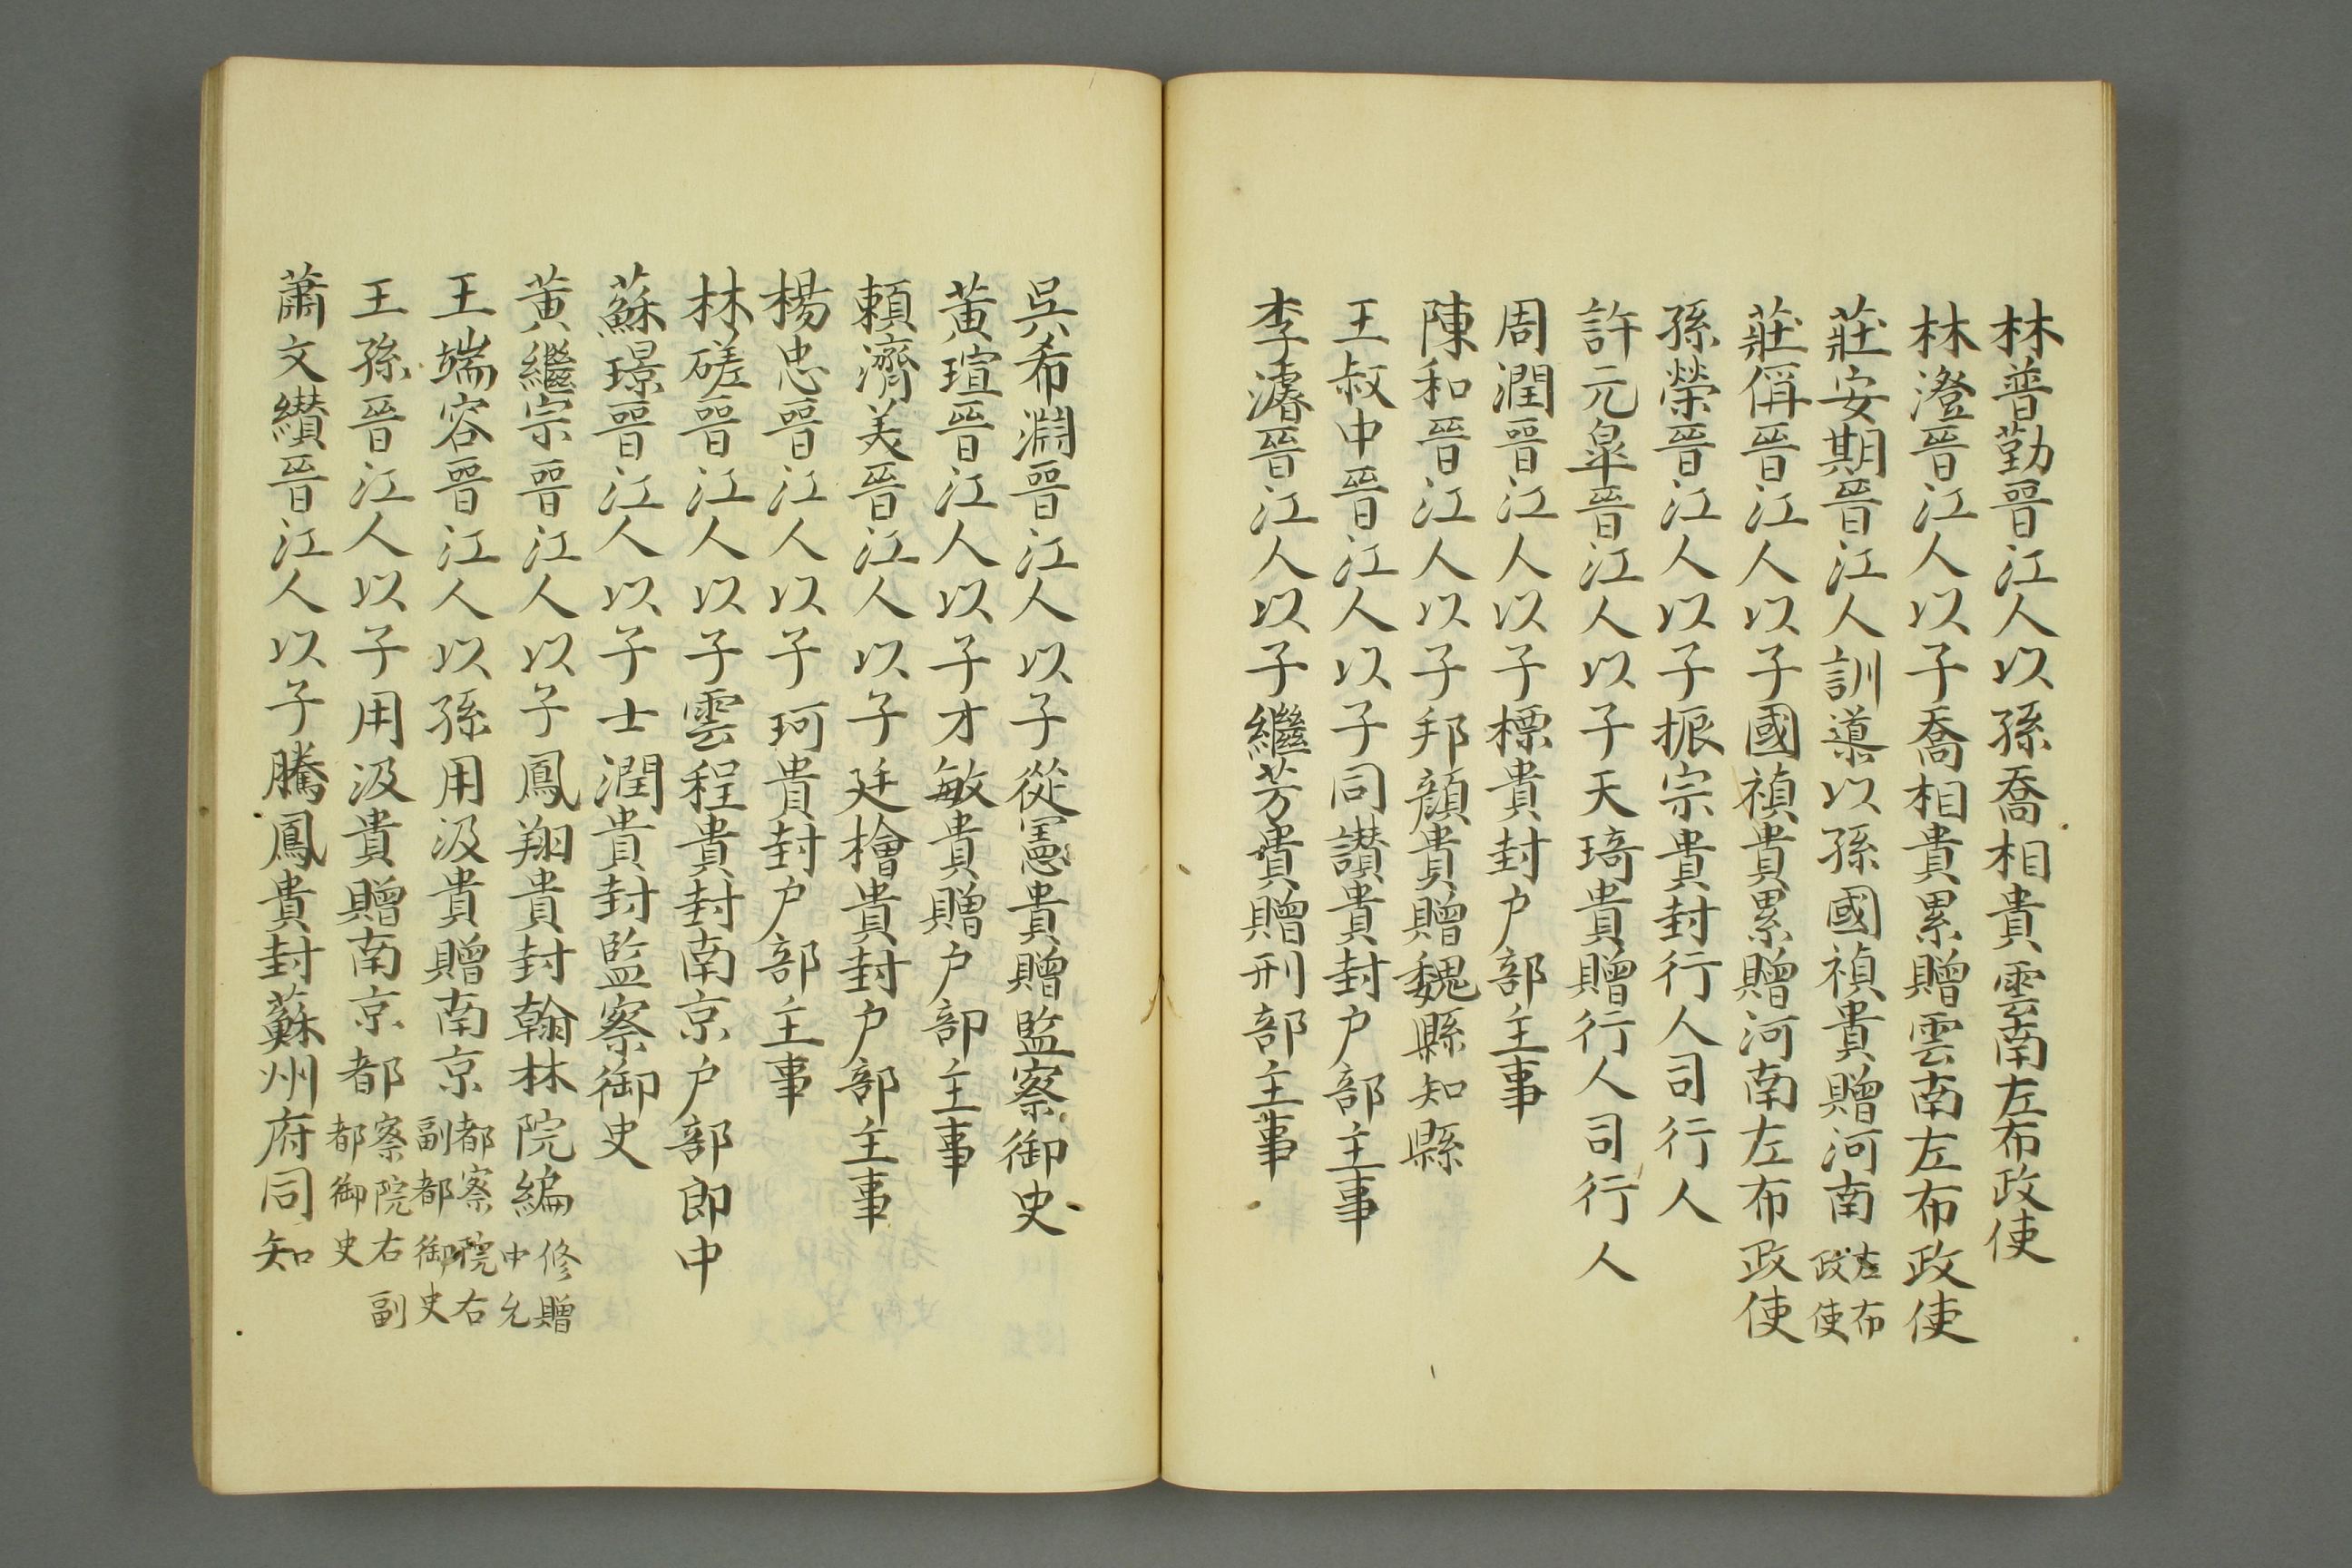 林普勤晉江人以孫喬相貴雲南左布政使
林澄晉江人以子喬相貴累贈雲南左布政使
莊安期晉江人訓導以孫國禎貴贈河南左布政使
莊偁晉江人以子國禎貴累贈河南左布政使
孫榮晉江人以子振宗貴封行人司行人
許元皐晉江人以子天琦貴贈行人司行人
周潤晉江人以子標貴封户部主事
陳和晉江人以子邦顏貴贈魏縣知縣
王叔中晉江人以子同讃貴封户部主事
李濬晉江人以子繼芳貴贈刑部主事
吳希淵晉江人以子從憲貴贈監察御史
黃瑄晉江人以子才敏貴贈户部主事
賴濟美晉江人以子廷檜貴封户部主事
楊忠晉江人以子珂貴封户部主事
林磋晉江人以子雲程貴封南京户部郎中
蘇璟晉江人以子士潤貴封監察御史
黃繼宗晉江人以子鳳翔貴封翰林院編修贈中允
王端容晉江人以孫用汲貴贈南京都察院右副都御史
王孫晉江人以子用汲貴贈南京都察院右副都御史
蕭文纉晉江人以子騰鳳貴封蘇州府同知